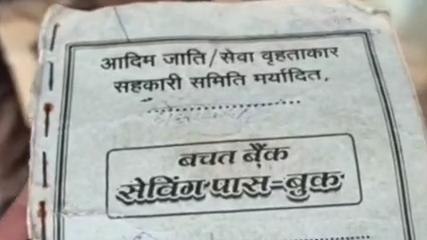 आदिम जाति/सेवा वृहताकार
सहकारी समिति मर्यादित,
बचत बैंक
सेविंग पास-बुक